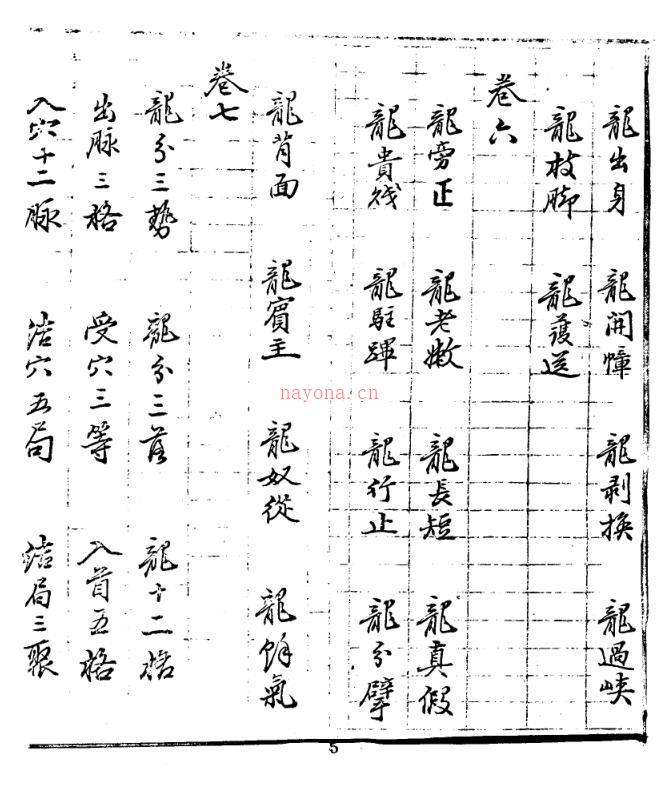 龍出身 龍開幛 龍剥換 龍過峽
龍枝脚 龍護送
卷六
龍旁正 龍老嫩 龍長短 龍真假
龍貴賤 龍駐蹕 龍行止 龍分擘
龍背面 龍賓主 龍奴從 龍餘氣
卷七
龍分三勢 龍分三落 龍十二格
出脉三格 受穴三等 入首五格
入穴十二脉 结穴五局 结局三聚
nayona.cn
5